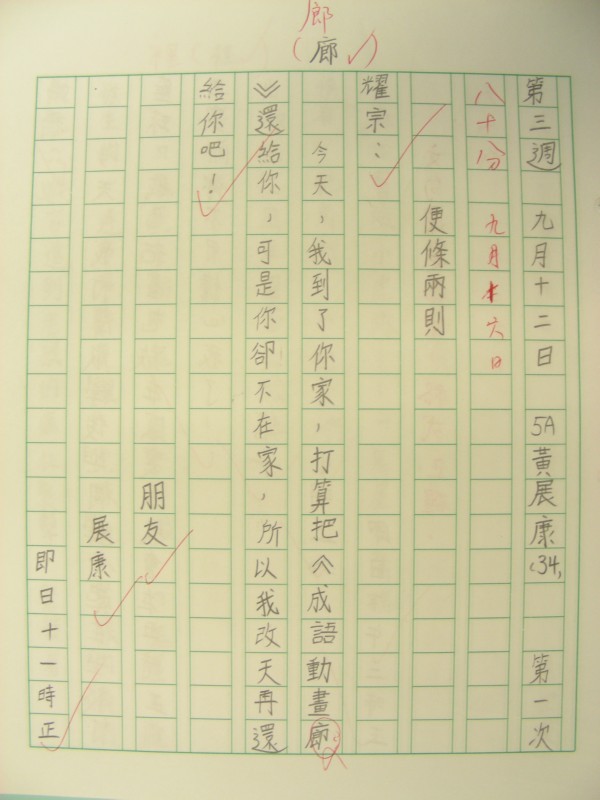 廊
(廊)
第三週 九月十二日 5A黃展康(34) 第一次
八十分 九月十六日
便條兩則
耀宗：
今天，我到了你家，打算把《成語動畫廊
》還給你，可是你卻不在家，所以我改天再還
給你吧！
朋友
展康
即日十一時正